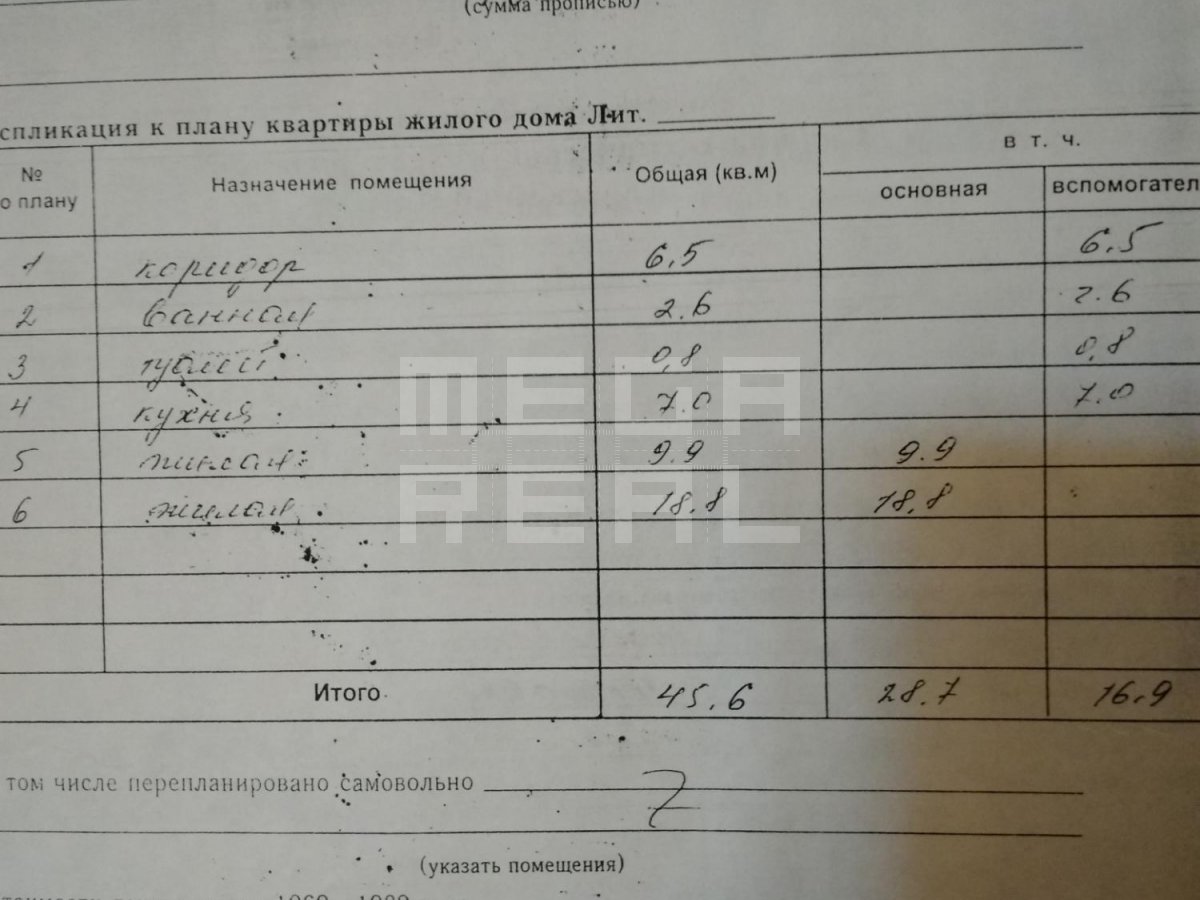 (сумма прописью)
спликация к плану квартиры жилого дома Лит.
№ о плану Назначение помещения Общая (кв.м) в т. ч. основная вспомогател
1 коридор 6,5 6.5
2 ванная 2.6 2.6
3 туалет 0,8 0,8
4 кухня 7.0 7.0
5 жилая 9.9 9.9
6 жилая 18.8 18,8
Итого 45.6 28.7 16.9
том числе перепланировано самовольно
(указать помещения)
MEGA
REAL